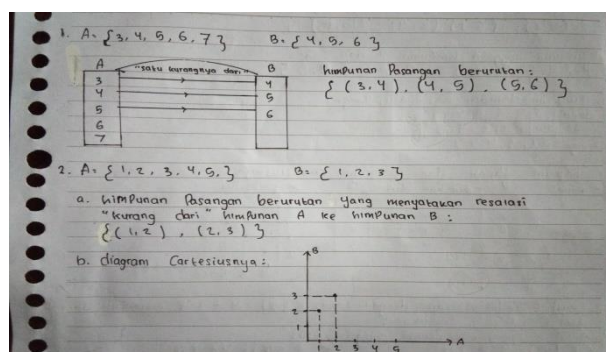 1. A = {3, 4, 5, 6, 7} B = {4, 5, 6}
A "satu kurangnya dari" B
3 4
4 5
5 6
6
7
himpunan Pasangan berurutan :
{ (3,4), (4, 5), (5,6) }
2. A = {1, 2, 3, 4, 5, } B = {1, 2, 3}
a. himpunan Pasangan berurutan yang menyatakan resalasi
"kurang dari" himpunan A ke himpunan B :
{ (1,2) , (2,3) }
b. diagram Cartesiusnya :
B
3
2
1
1 2 3 4 5 A